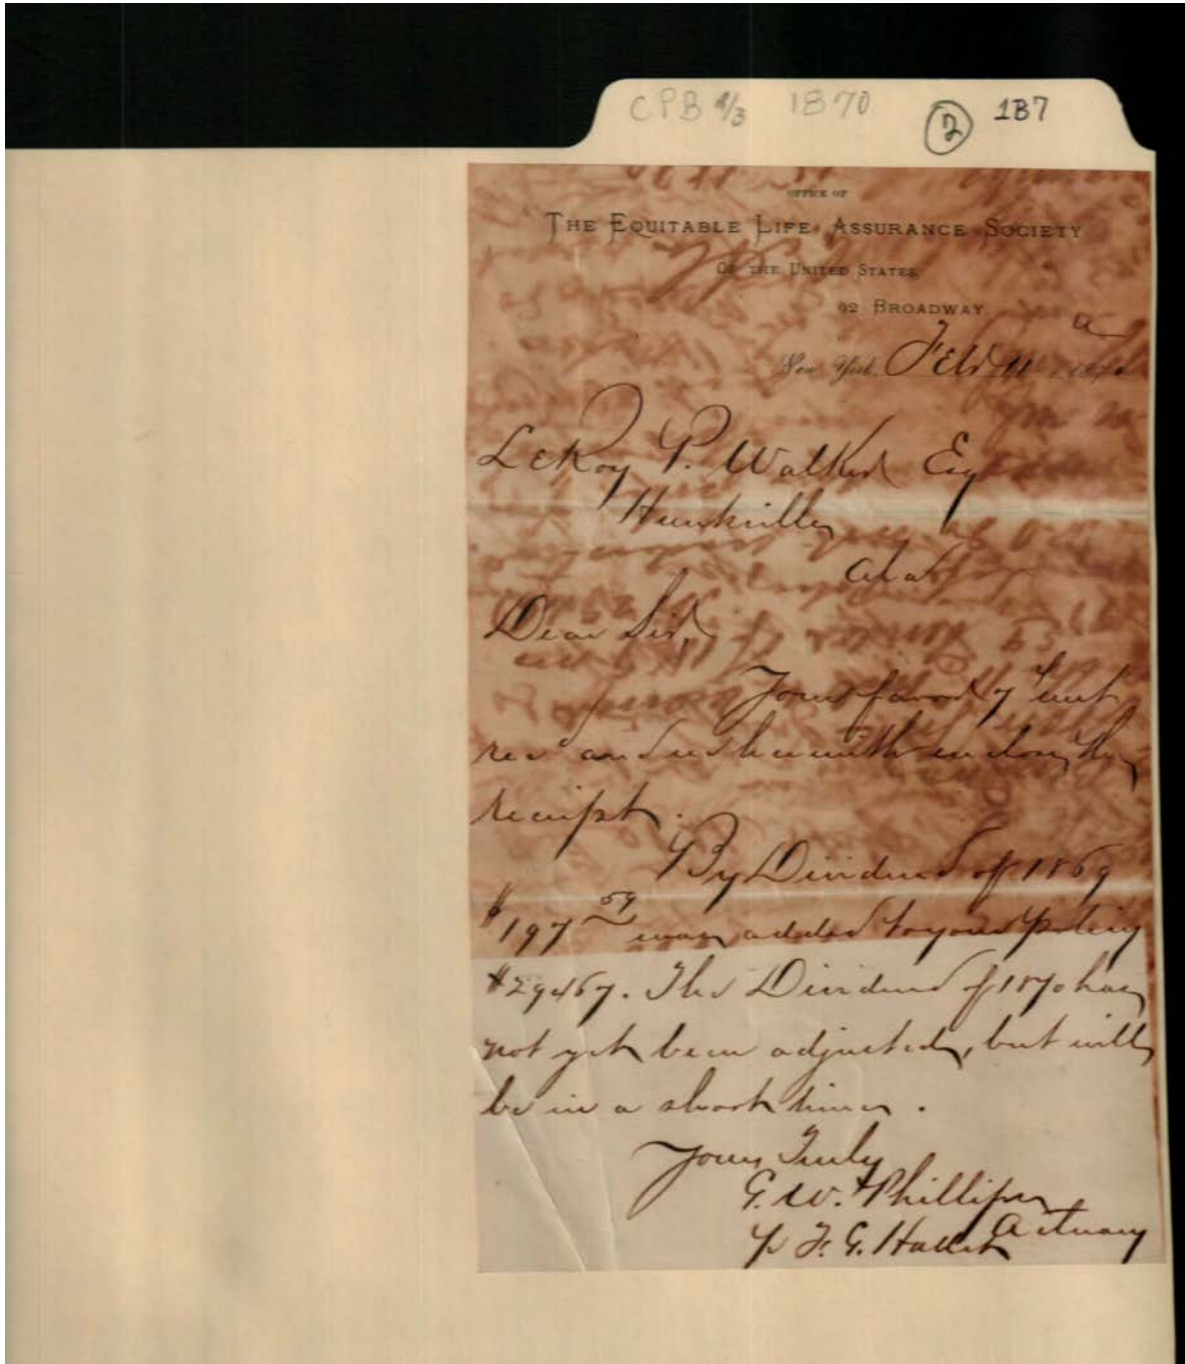 CPB 4/3 1870 2 1B7
OFFICE OF
THE EQUITABLE LIFE ASSURANCE SOCIETY
OF THE UNITED STATES
92 BROADWAY
New York, Feb 11 1870
LeRoy P. Walker Esq
Huntsville
Ala
Dear Sir,
Your favor 7 inst
recd and herewith enclose the
receipt.
By Dividend of 1869
$197 59 was added to your policy
#29467. The Dividend of 1870 has
not yet been adjusted, but will
be in a short time.
Yours Truly
G. W. Phillips
Actuary
p F. G.